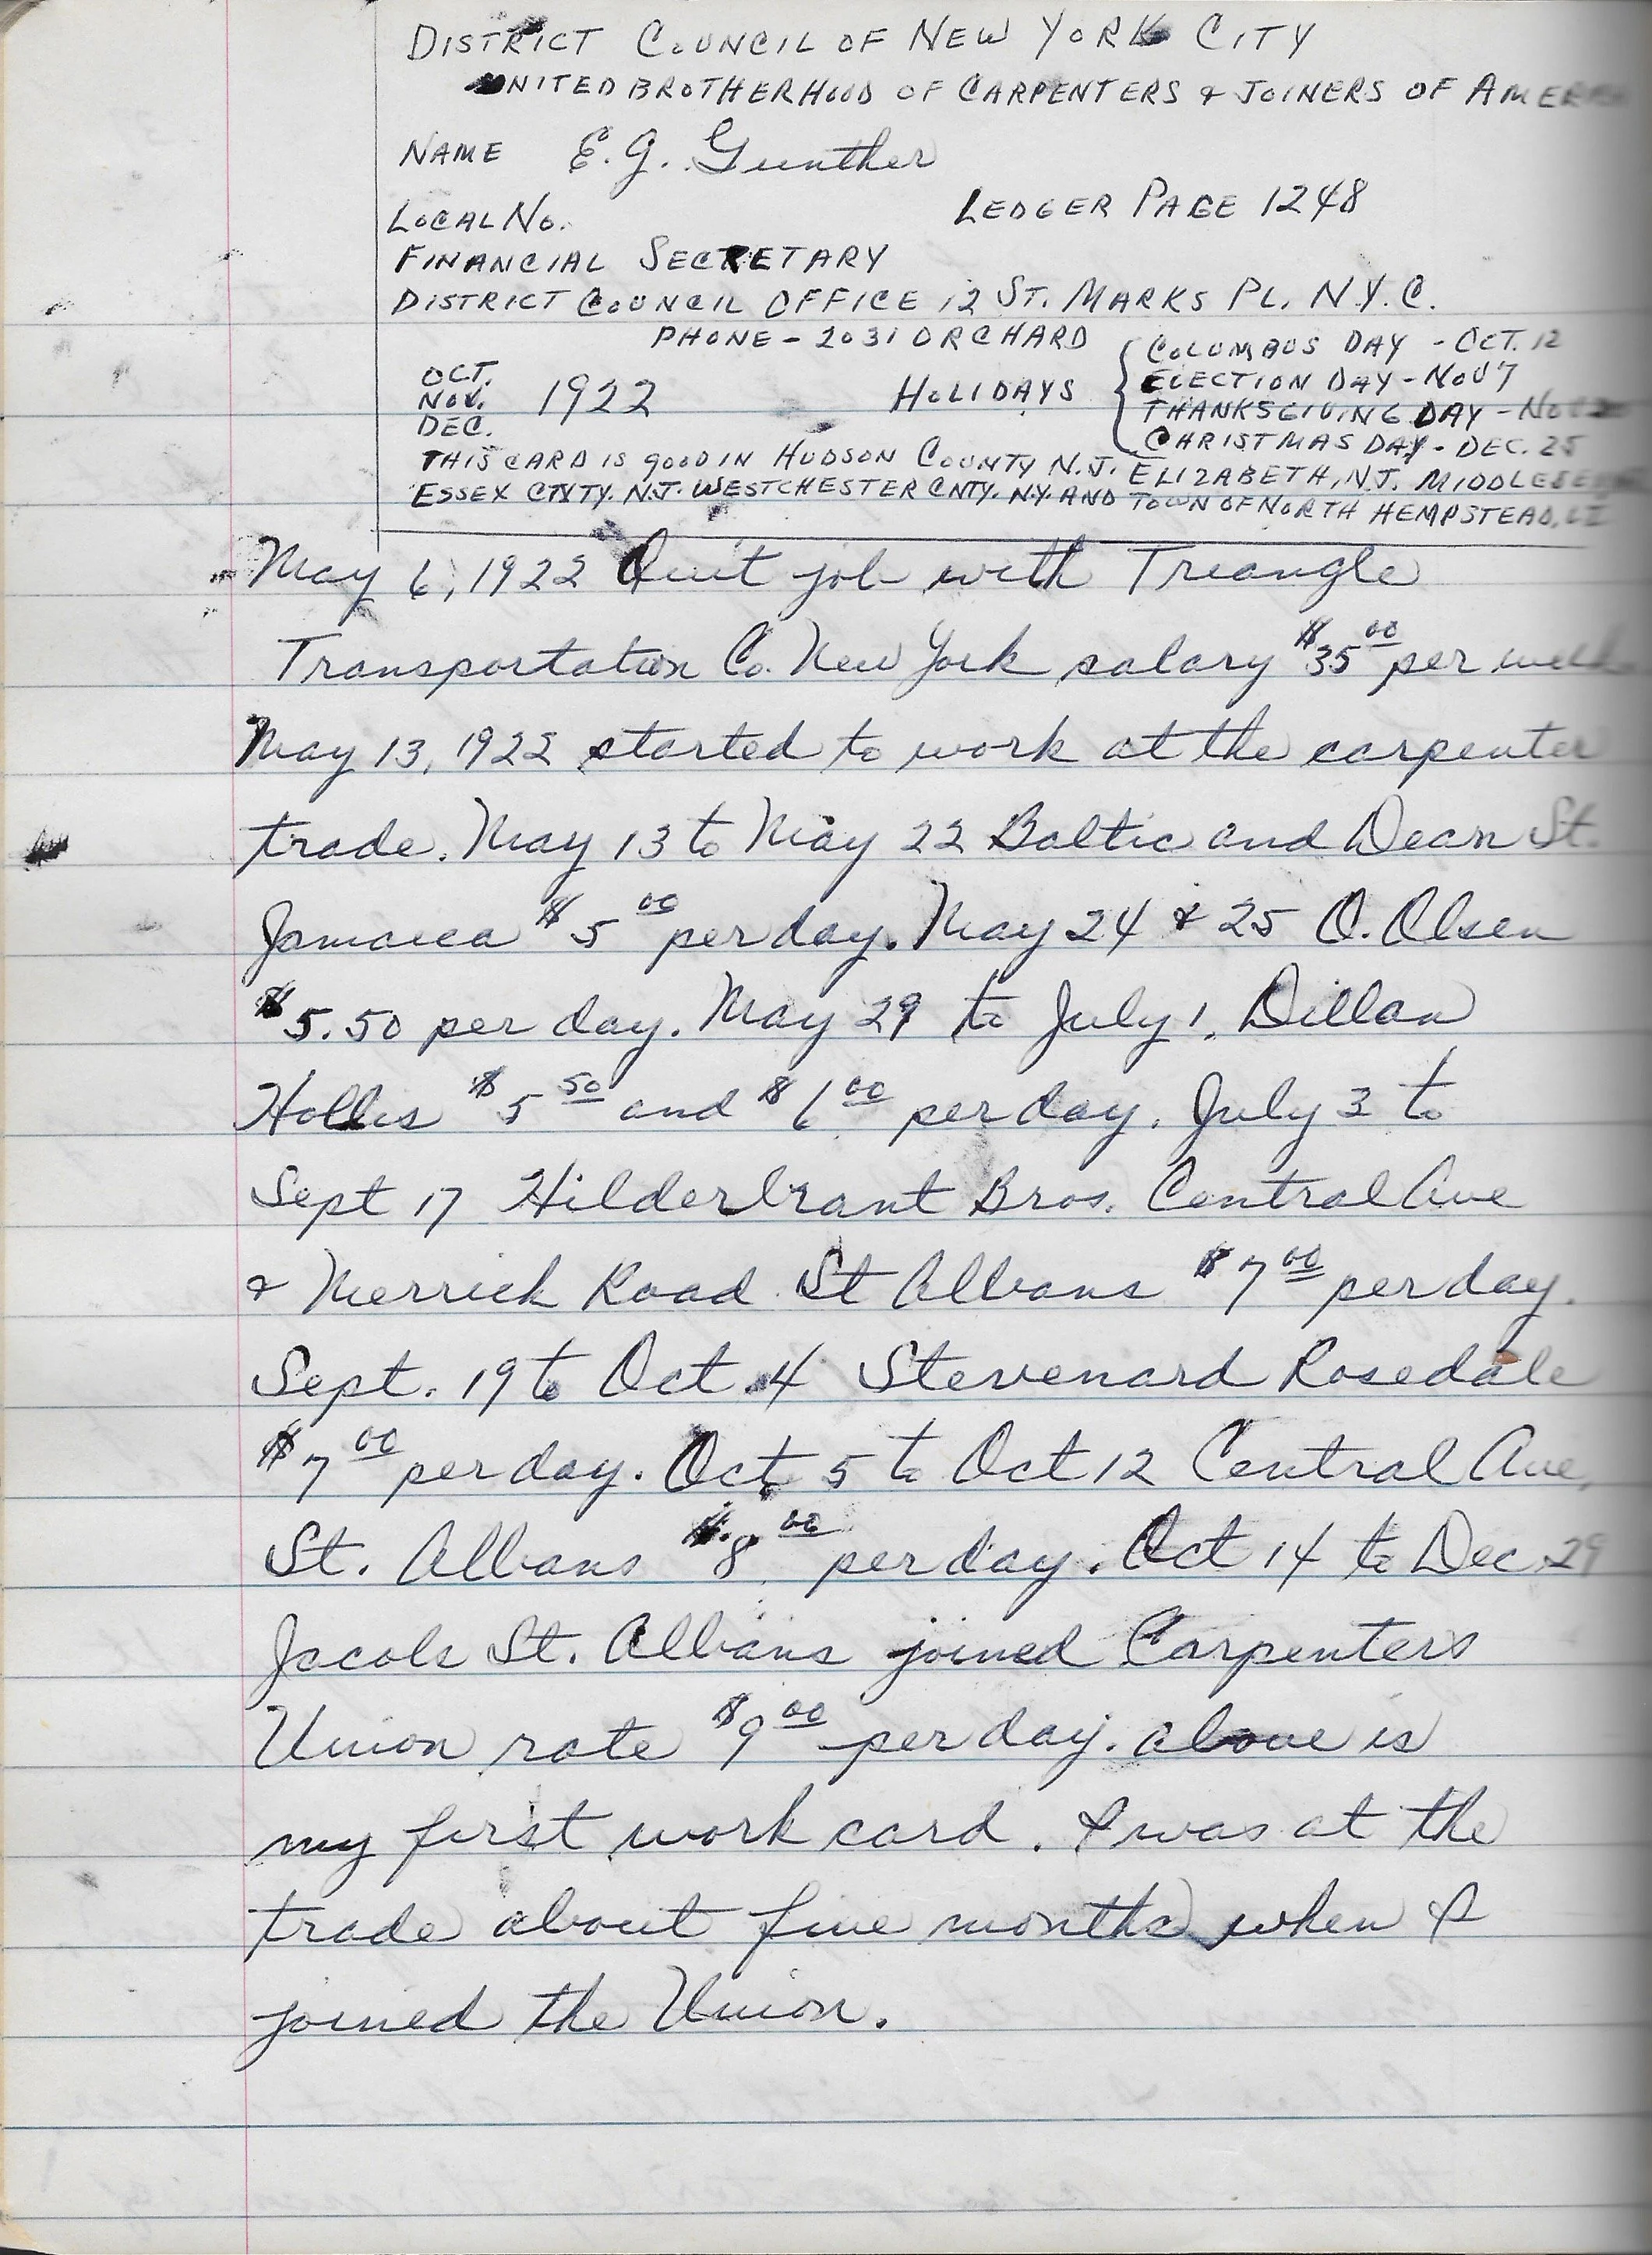 DISTRICT COUNCIL OF NEW YORK CITY
UNITED BROTHERHOOD OF CARPENTERS & JOINERS OF AMERICA
NAME E. G. Gunther
LOCAL NO. LEDGER PAGE 1248
FINANCIAL SECRETARY
DISTRICT COUNCIL OFFICE 12 ST. MARKS PL. N.Y.C.
PHONE - 2031 ORCHARD
OCT.
NOV. 1922 HOLIDAYS
DEC.
COLUMBUS DAY - OCT. 12
ELECTION DAY - NOV 7
THANKSGIVING DAY - NOV
CHRISTMAS DAY - DEC. 25
THIS CARD IS GOOD IN HUDSON COUNTY N.J. ELIZABETH, N.J. MIDDLESEX
ESSEX CNTY. N.J. WESTCHESTER CNTY. N.Y. AND TOWN OF NORTH HEMPSTEAD, LI
May 6, 1922 Quit job with Triangle
Transportation Co. New York salary $35 00 per week
May 13, 1922 started to work at the carpenter
trade. May 13 to May 22 Baltic and Dean St.
Jamaica $5 00 per day. May 24 & 25 O. Olsen
$5.50 per day. May 29 to July 1, Dillon
Hollis $5 50 and $6 00 per day. July 3 to
Sept 17 Hilderbrant Bros. Central Ave
& Merrick Road St Albans $7 00 per day.
Sept. 19 to Oct. 4 Stevenard Rosedale
$7 00 per day. Oct. 5 to Oct 12 Central Ave,
St. Albans $8 00 per day. Oct 14 to Dec 29
Jacobs St. Albans joined Carpenters
Union rate $9 00 per day. above is
my first work card. I was at the
trade about five months when I
joined the Union.